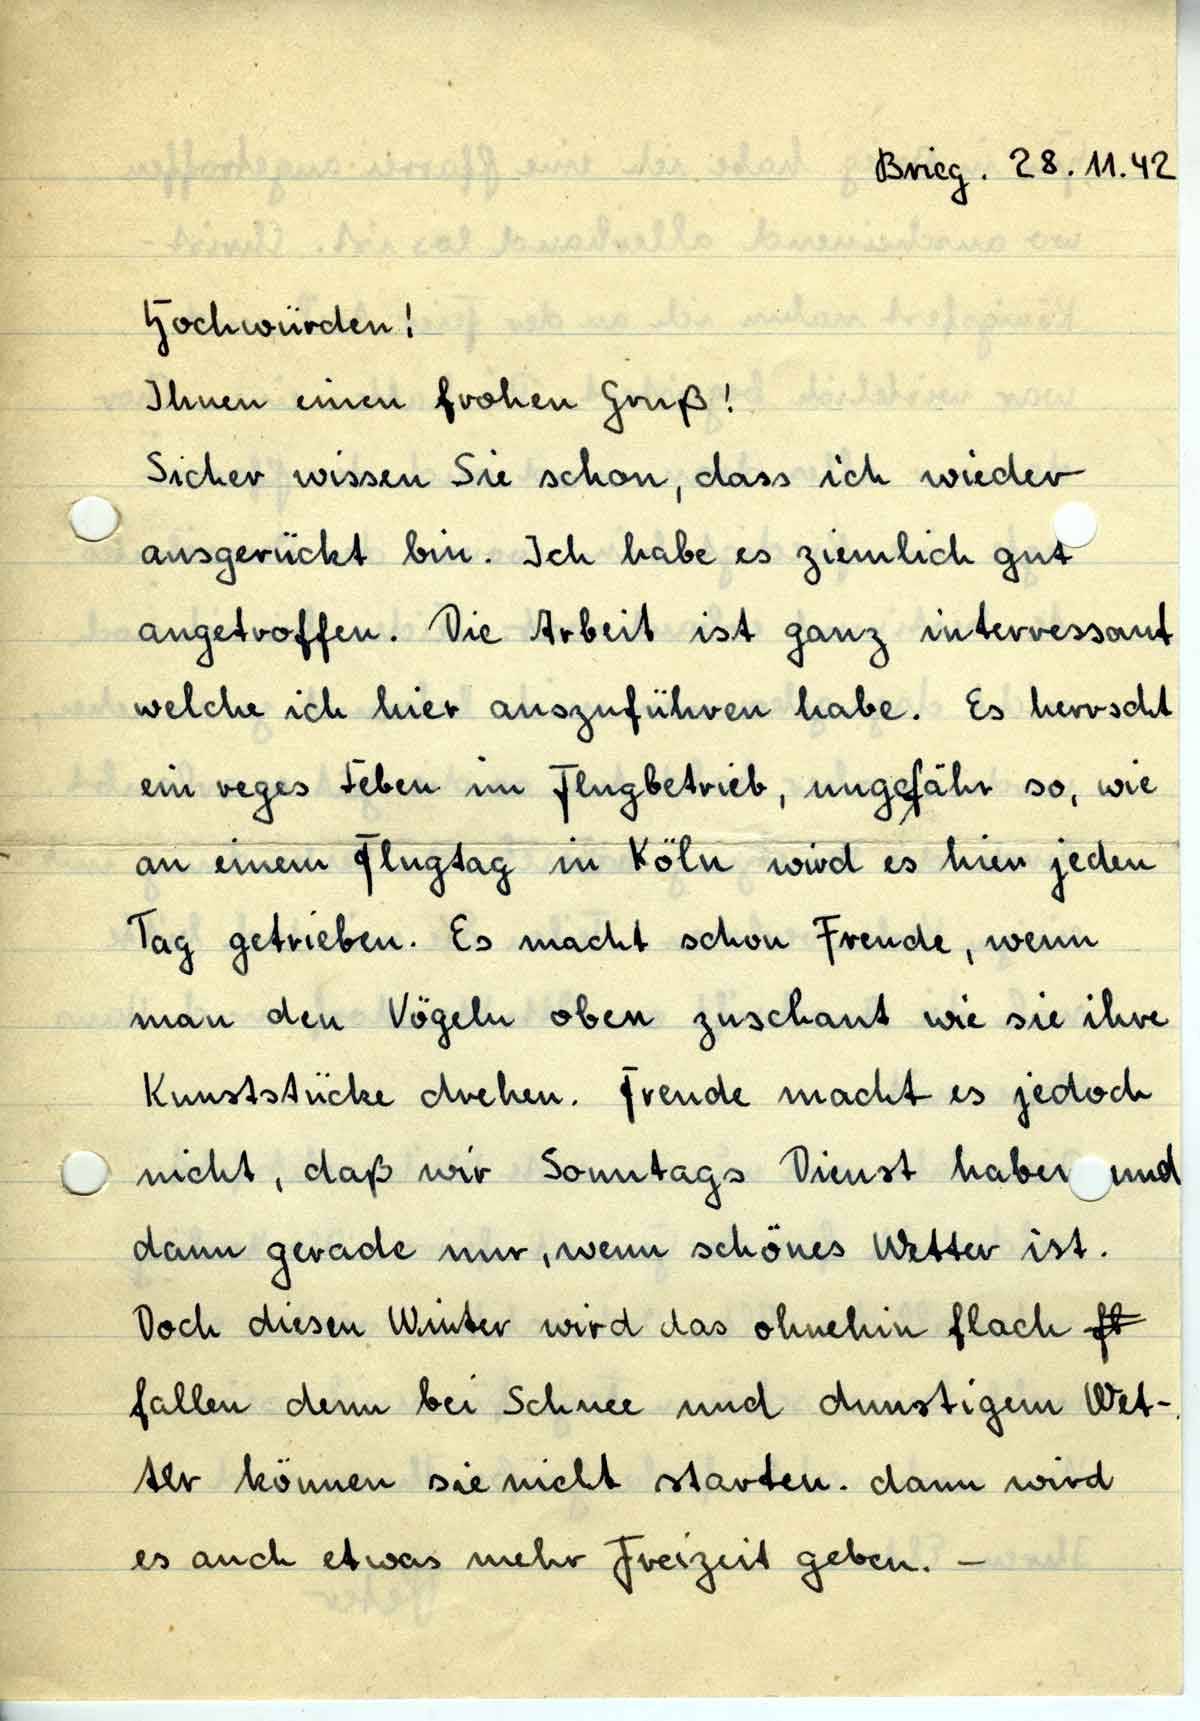 Brieg. 28.11.42
Hochwürden!
Ihnen einen frohen Gruß!
Sicher wissen Sie schon, dass ich wieder
ausgerückt bin. Ich habe es ziemlich gut
angetroffen. Die Arbeit ist ganz interressant
welche ich hier auszuführen habe. Es herrscht
ein reges Leben im Flugbetrieb, ungefähr so, wie
an einem Flugtag in Köln wird es hier jeden
Tag getrieben. Es macht schon Freude, wenn
man den Vögeln oben zuschaut wie sie ihre
Kunststücke drehen. Freude macht es jedoch
nicht, daß wir Sonntags Dienst haben und
dann gerade nur, wenn schönes Wetter ist.
Doch diesen Winter wird das ohnehin flach
fallen denn bei Schnee und dunstigem Wet-
ter können sie nicht starten. dann wird
es auch etwas mehr Freizeit geben. –